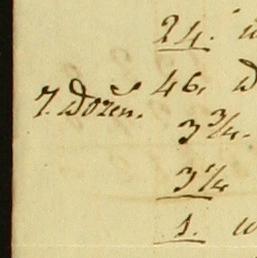 24.
7. Dozen. 46.
3 3/4.
3 1/4
1.